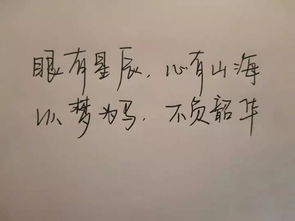 眼有星辰，心有山海
以梦为马，不负韶华